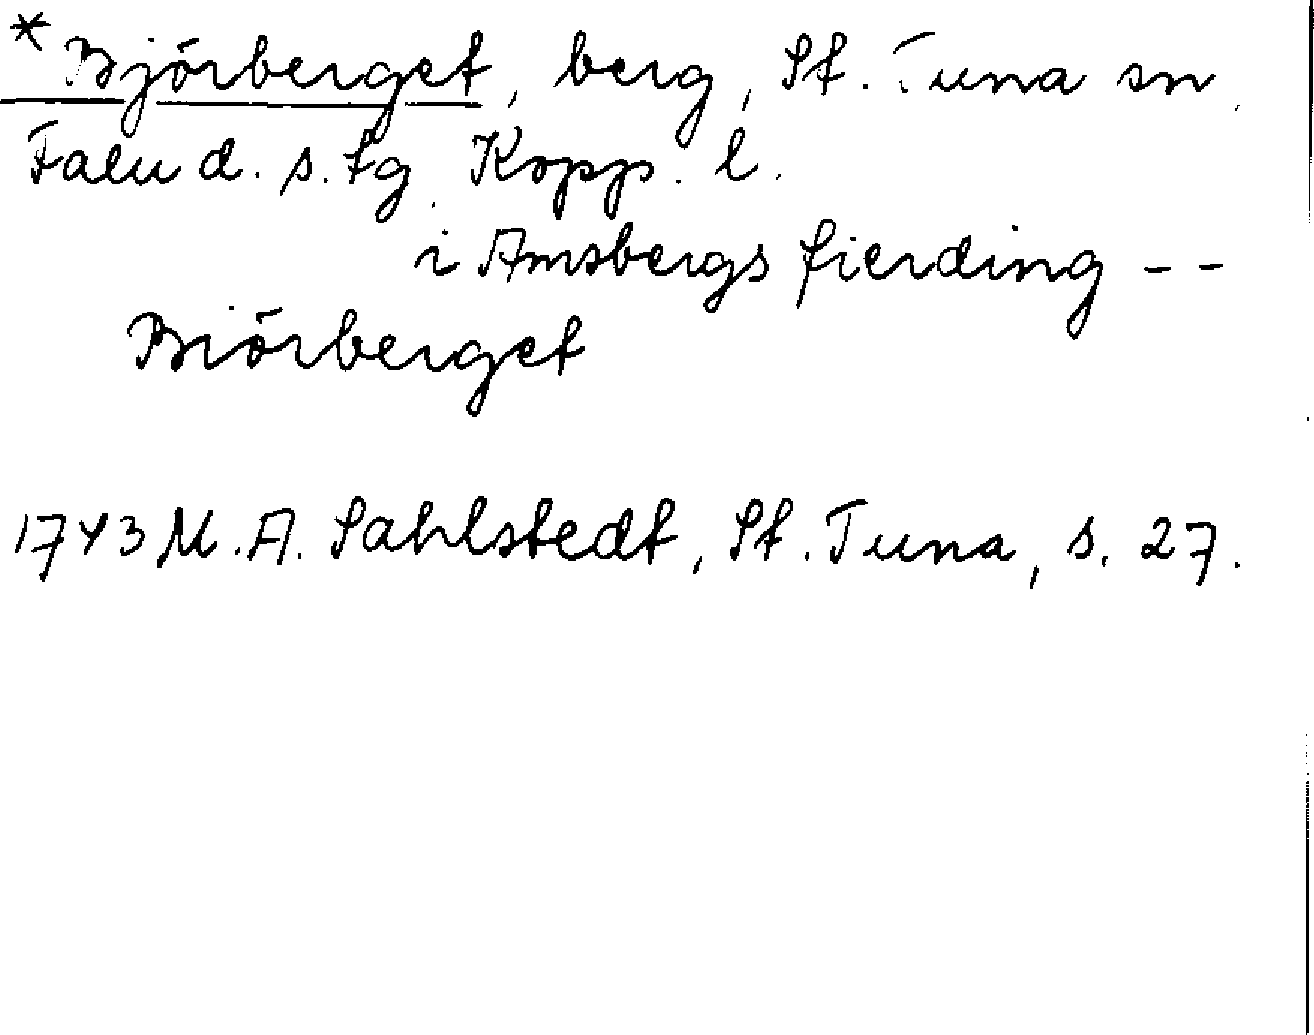 *Björberget, berg, St. Tuna sn,
Falu d. s. tg. Kopp. l.
i Amsbergs fierding --
Biörberget
1743 M. A. Sahlstedt, St. Tuna, s. 27.